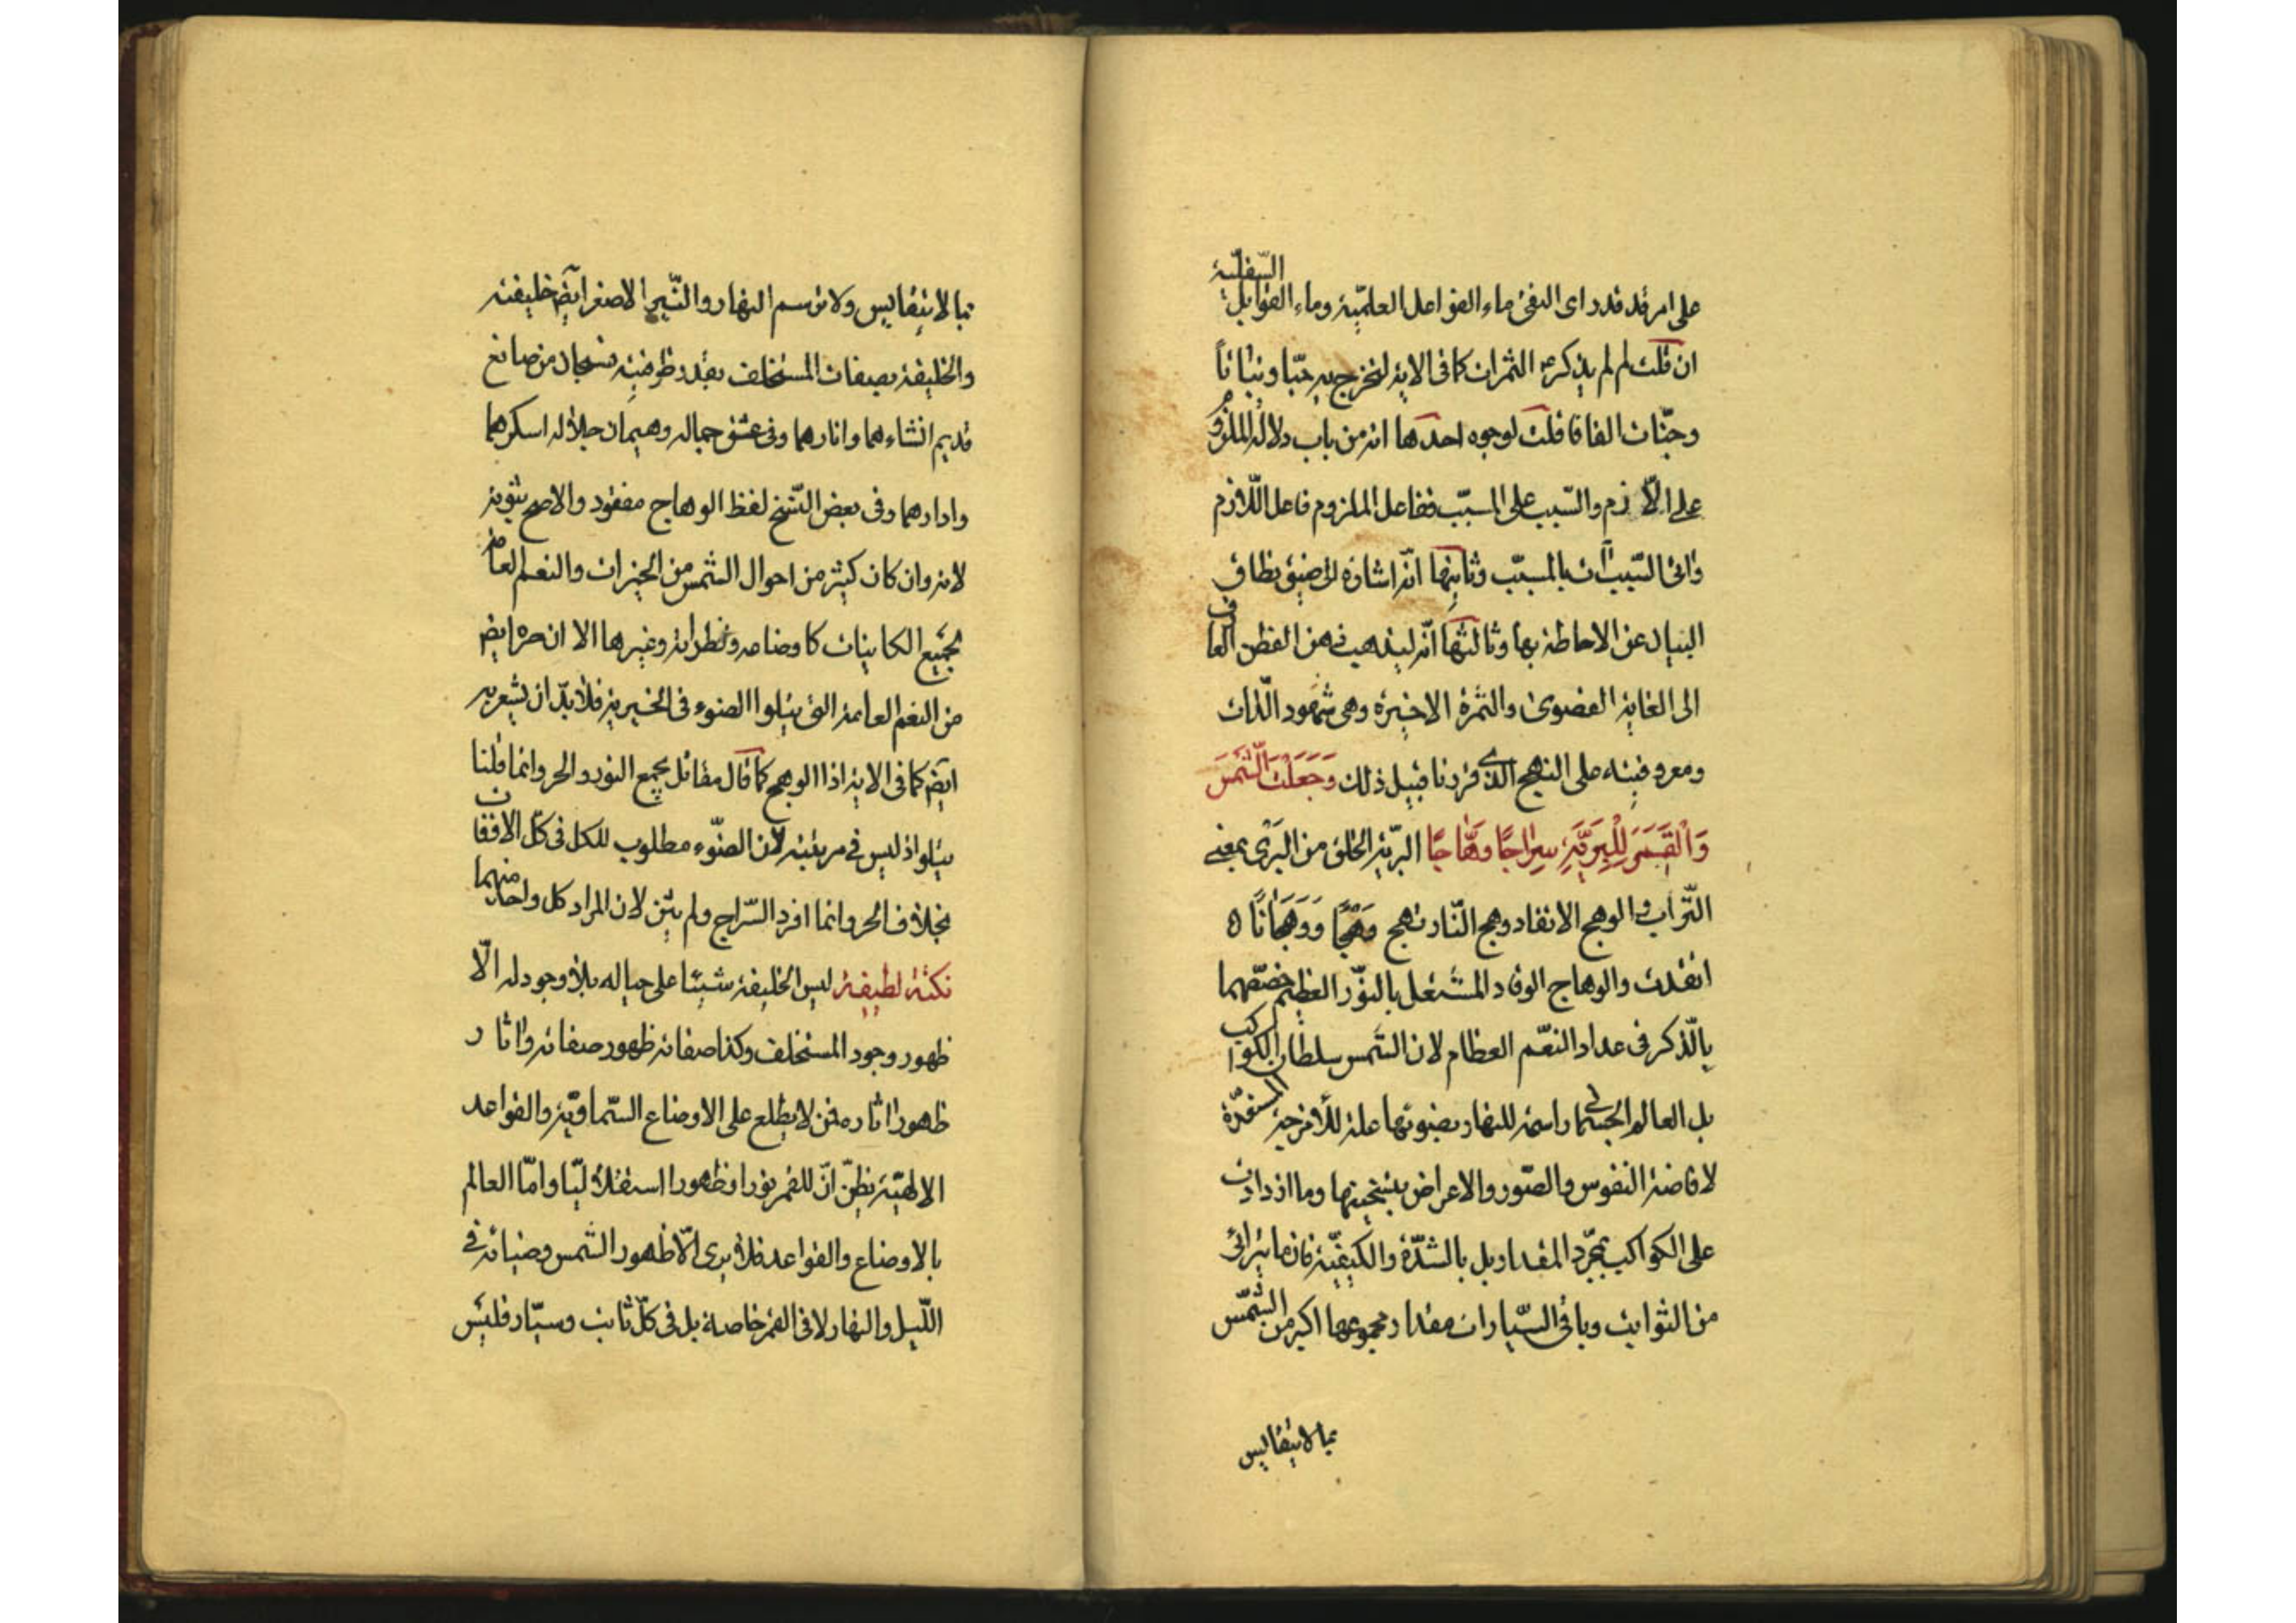 على امر قد قدر اى التقى ماء الفواعل العلميّة وماء القوابل السّفليّة
ان قلت لم لم يذكر ع الثمرات كما فى الاية لنخرج به حبّا ونباتاً
وجنّات الفافا قلت لوجوه احدها انه من باب دلالة الملزوم
على اللّازم والسّبب على المسبّب ففاعل الملزوم فاعل اللّازم
بالمسبّب وثانيها انّه اشارة الى ضيق نطاق
البيان عن الاحاطة بها وثالثها انّه ليذهب ذهن الفطن العارف
الى الغاية القصوى والثمرة الاخيرة وهى شهود الذّات
ومعروفيته على النهج الّذى قررنا قبيل ذلك وَجَعَلْتَ الشَّمْسَ
وَالْقَمَرَ لِلْبَرِيَّةِ سِرَاجًا وَهَّاجًا البريّة الخلق من البَرَى بمعنى
التّراب والوهج الاتقاد وهج النّار تهج وَهْجًا وَوَهَجَانًا
اتقدت والوهاج الوقاد المشتعل بالنّور العظيم خصّهما
بالذّكر فى عداد النعّم العظام لان الشّمس سلطان الكواكب
بل العالم الجسمانى راسمة للنهار بضوئها علة للأمزجة المستعدّة
لافاضة النفوس والصّور والاعراض بتسخينها وما ازدادت
على الكواكب بمجرّد المقدار بل بالشدّة والكيفيّة فان ما يترائى
من الثوابت وباقى السّيارات مقدار مجموعها اكبر من الشّمس
بما لا يتقايس
بما لا يتقايس ولا ترسم النهار والنّير الاصغر ايض خليفته
والخليفة بصفات المستخلف بقدر ظرفيته فسبحان من صانع
قديم انشاءهما وانارهما وفى عشق جماله وهيمان جلاله اسكرهما
وادارهما وفى بعض النّسخ لفظ الوهاج مفقود والاصح ثبوته
لانه وان كان كثير من احوال الشمس من الخيرات والنعم العامّة
لجميع الكاينات كاوضاعه ونظراته وغيرها الا ان حره ايض
من النعم العامة التى يتلوا الضوء فى الخيرية فلا بدّ ان يشعر به
ايض كما فى الاية اذا الوهج كما قال مقاتل يجمع النور والحر وانما قلنا
يتلو اذ ليس فى مرتبته لان الضّوء مطلوب للكل فى كلّ الاوقات
بخلاف الحر وانما افرد السّراج ولم يثن لان المراد كل واحد منهما
نكتة لطيفة ليس الخليفة شيئا على حياله بلا وجود له الّا
ظهور وجود المستخلف وكذا صفاته ظهور صفاته واثاره
ظهور اثاره فمن لا يطلع على الاوضاع السّماويّة والقواعد
الالهيّة يظنّ انّ للقمر نورا وظهورا استقلاليّا وامّا العالم
بالاوضاع والقواعد فلا يرى الّا ظهور الشّمس وضيائه فى
اللّيل والنهار لا فى القمر خاصة بل فى كلّ ثابت وسيّار فليس